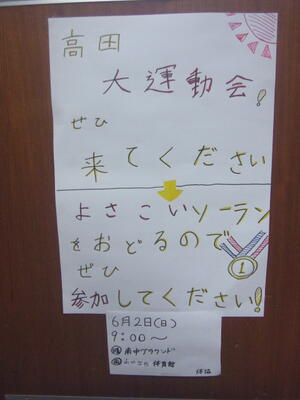 高田
大運動会!
ぜひ
来てください
よさこいソーラン
をおどるので
ぜひ
参加してください!
1
6月2日(日)
9:00〜
南中グラウンド
体育館